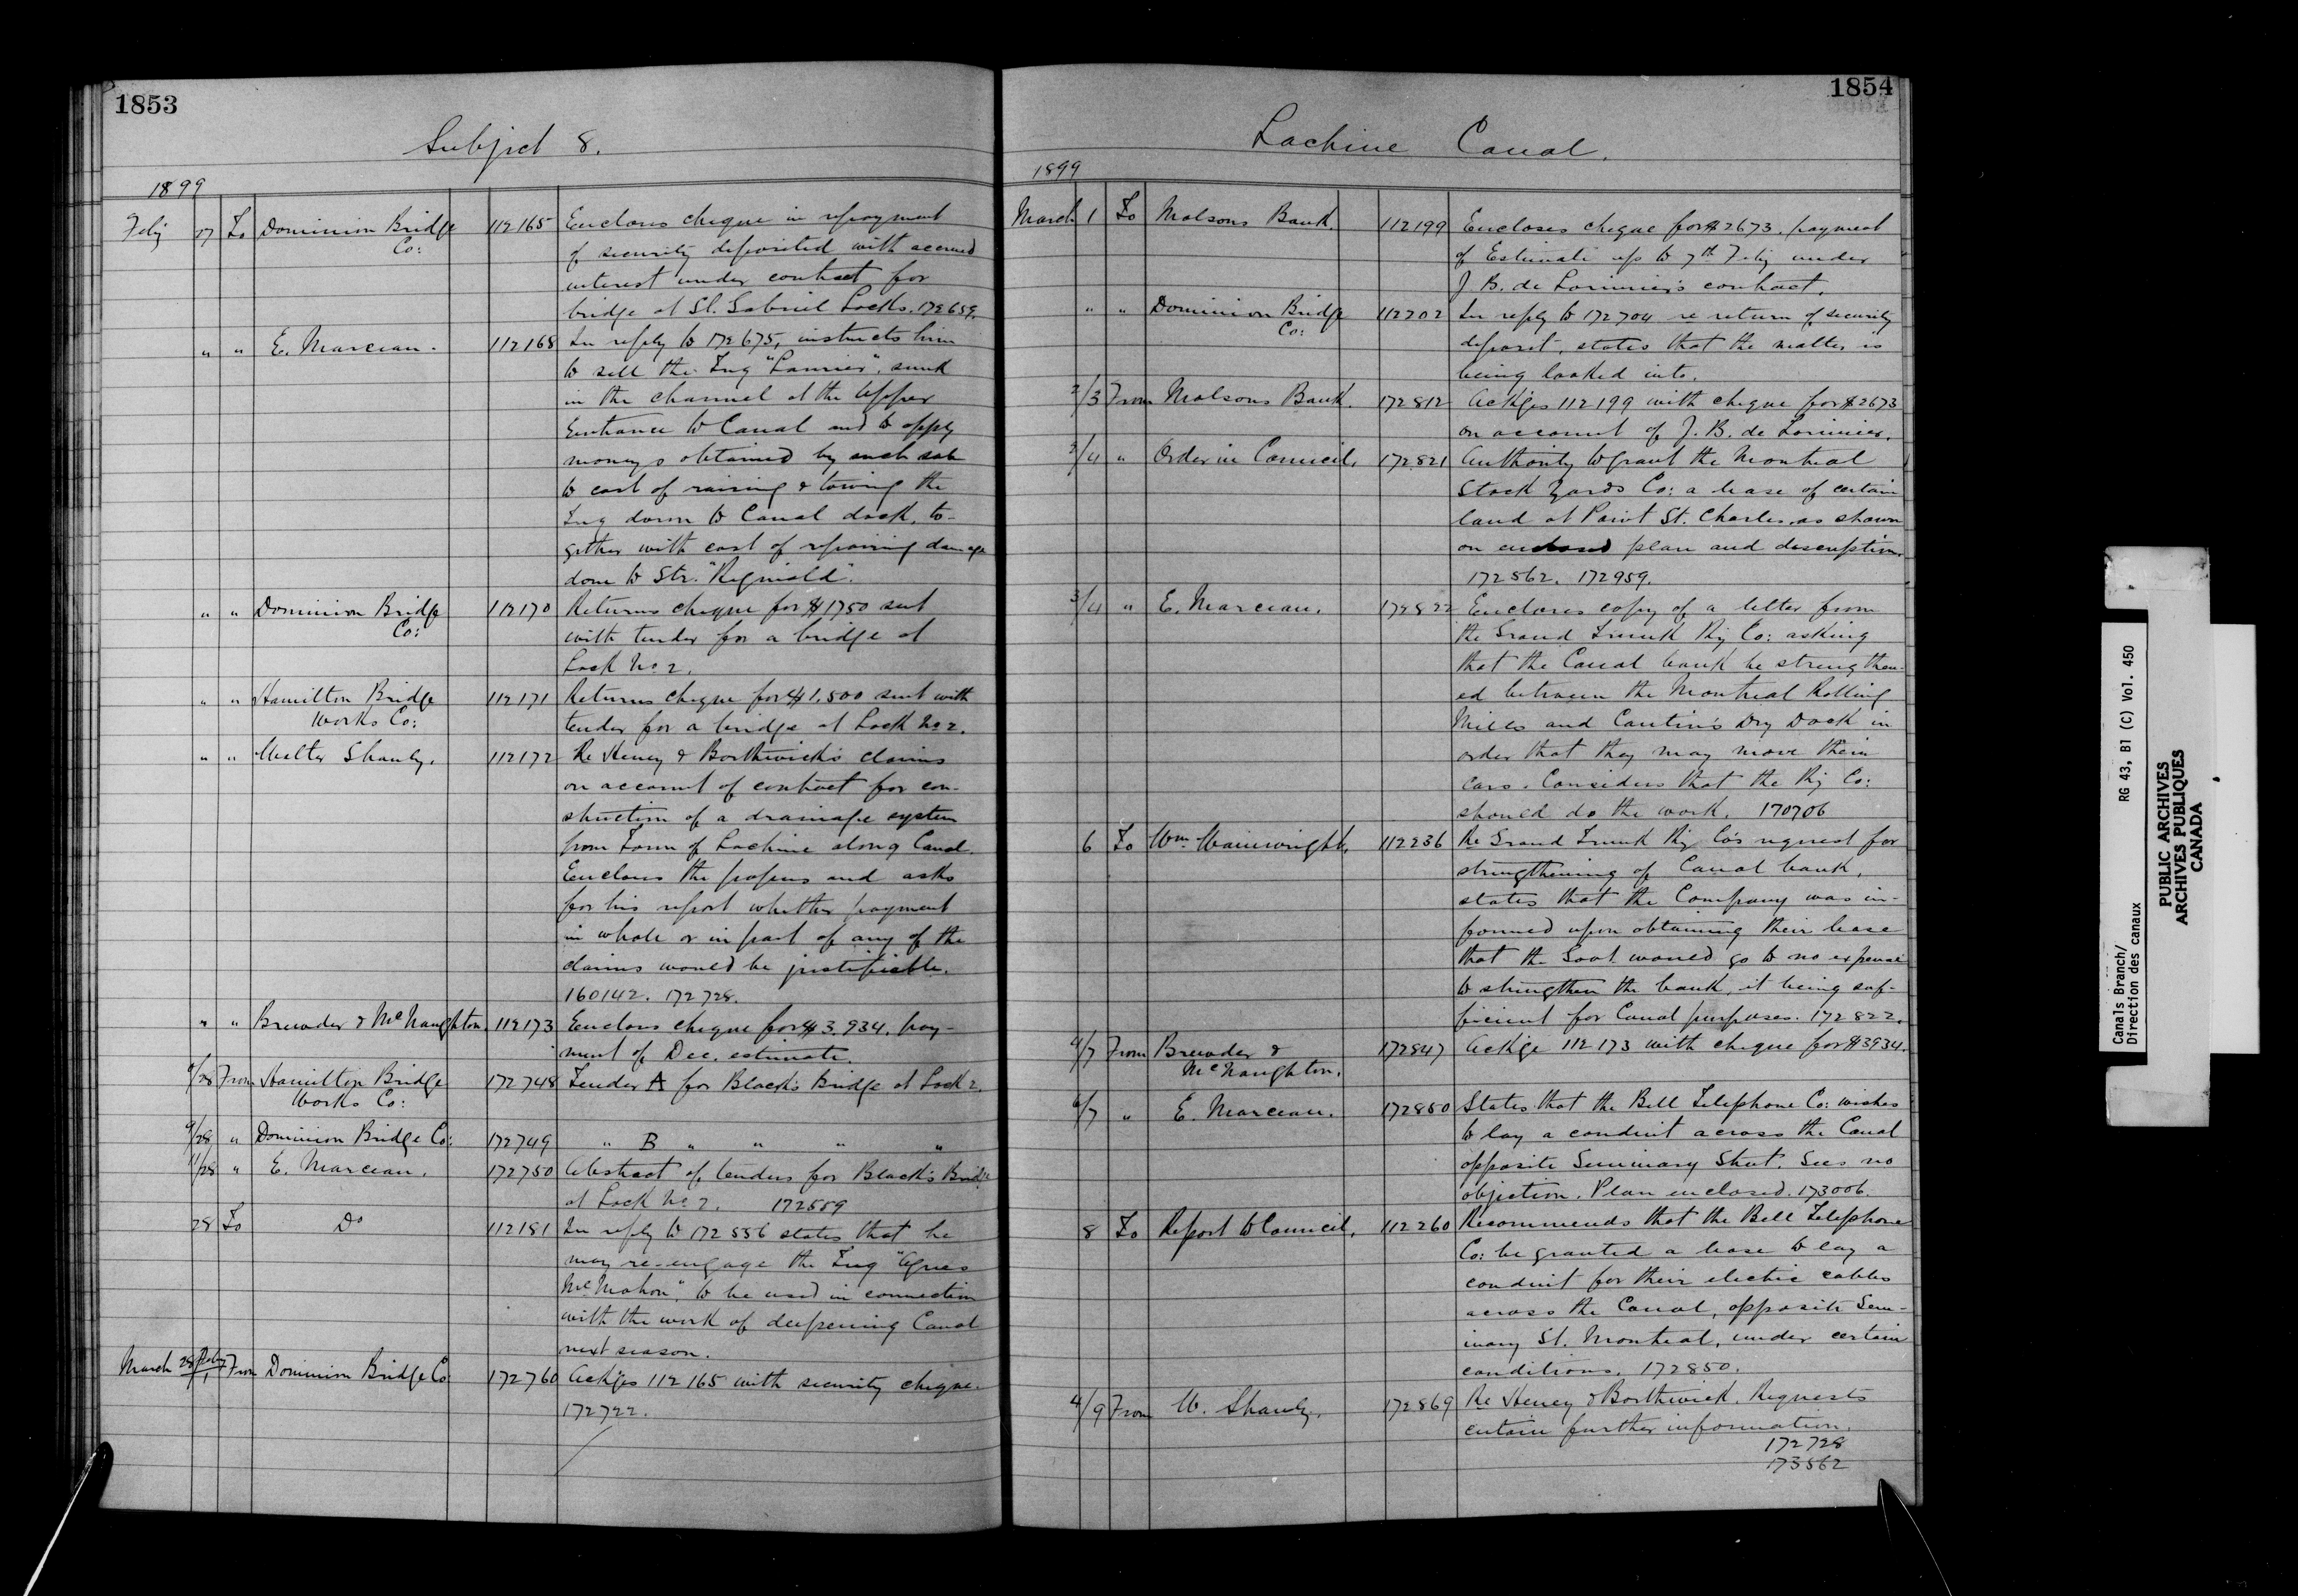 1853
Subject 8.
1899
Feby 27 To Dominion Bridge 112165 Encloses cheque in repayment
Co: of security deposited with accrued
interest under contract for
bridge at St. Gabriel Locks. 172659.
" " E. Marceau. 112168 In reply to 172675, instructs him
to sell the Tug "Laurier", sunk
in the channel at the upper
Entrance to Canal and to apply
moneys obtained by such sale
to cost of raising & towing the
Tug down to Canal dock, to-
gether with cost of repairing damage
done to Str. "Reginald".
" " Dominion Bridge 112170 Returns cheque for $1750 sent
Co: with tender for a bridge at
Lock No. 2.
" " Hamilton Bridge 112171 Returns cheque for $1,500 sent with
Works Co: tender for a bridge at Lock No. 2.
" " Walter Shanly. 112172 Re Heney & Borthwick's claims
on account of contract for con-
struction of a drainage system
from Town of Lachine along Canal.
Encloses the papers and asks
for his report whether payment
in whole or in part of any of the
claims would be justifiable.
160142. 172728.
" " Brewder & McNaughton. 112173 Encloses cheque for $3,934. pay-
ment of Dec. estimate.
/28 From Hamilton Bridge 172748 Tender A for Black's Bridge at Lock 2.
Works Co:
9/28 " Dominion Bridge Co: 172749 " B " " " "
11/28 " E. Marceau. 172750 Abstract of tenders for Black's Bridge
at Lock No. 2. 172559
28 To Do 112181 In reply to 172556 states that he
may re-engage the Tug "Agnes
McMahon", to be used in connection
with the work of deepening Canal
next season.
March 28 Feby/1 From Dominion Bridge Co 172760 Ackges 112165 with security cheque.
172722.
1854
Lachine Canal.
1899
March 1 To Molsons Bank. 112199 Encloses cheque for $2673. payment
of Estimate up to 7th Feby under
J. B. de Lorimier's contract.
" " Dominion Bridge 112202 In reply to 172704 re return of security
Co: deposit, states that the matter is
being looked into.
2/3 From Molsons Bank. 172812 Ackges 112199 with cheque for $2673
on account of J. B. de Lorimier.
2/4 " Order in Council. 172821 Authority to grant the Montreal
Stock Yards Co: a lease of certain
land at Point St. Charles, as shown
on enclosed plan and description.
172562. 172959.
3/4 " E. Marceau. 172822 Encloses copy of a letter from
the Grand Trunk Ry Co: asking
that the Canal bank be strengthen-
ed between the Montreal Rolling
Mills and Cantin's Dry Dock in
order that they may move their
cars. Considers that the Ry Co:
should do the work. 170706
6 To Wm. Wainwright. 112236 Re Grand Trunk Ry Co's request for
strengthening of Canal bank,
states that the Company was in-
formed upon obtaining their lease
that the Govt. would go to no expense
to strengthen the bank, it being suf-
ficient for Canal purposes. 172822.
4/7 From Brewder & 172847 Ackge 112173 with cheque for $3934.
McNaughton.
6/7 " E. Marceau. 172850 States that the Bell Telephone Co: wishes
to lay a conduit across the Canal
opposite Seminary Street. Sees no
objection. Plan enclosed. 173006.
8 To Report to Council. 112260 Recommends that the Bell Telephone
Co: be granted a lease to lay a
conduit for their electric cables
across the Canal, opposite Sem-
inary St. Montreal, under certain
conditions. 172850.
4/9 From W. Shanly. 172869 Re Heney & Borthwick. Requests
certain further information.
172728
173562
Canals Branch/ RG 43, B1 (C) Vol. 450
Direction des canaux
PUBLIC ARCHIVES
ARCHIVES PUBLIQUES
CANADA